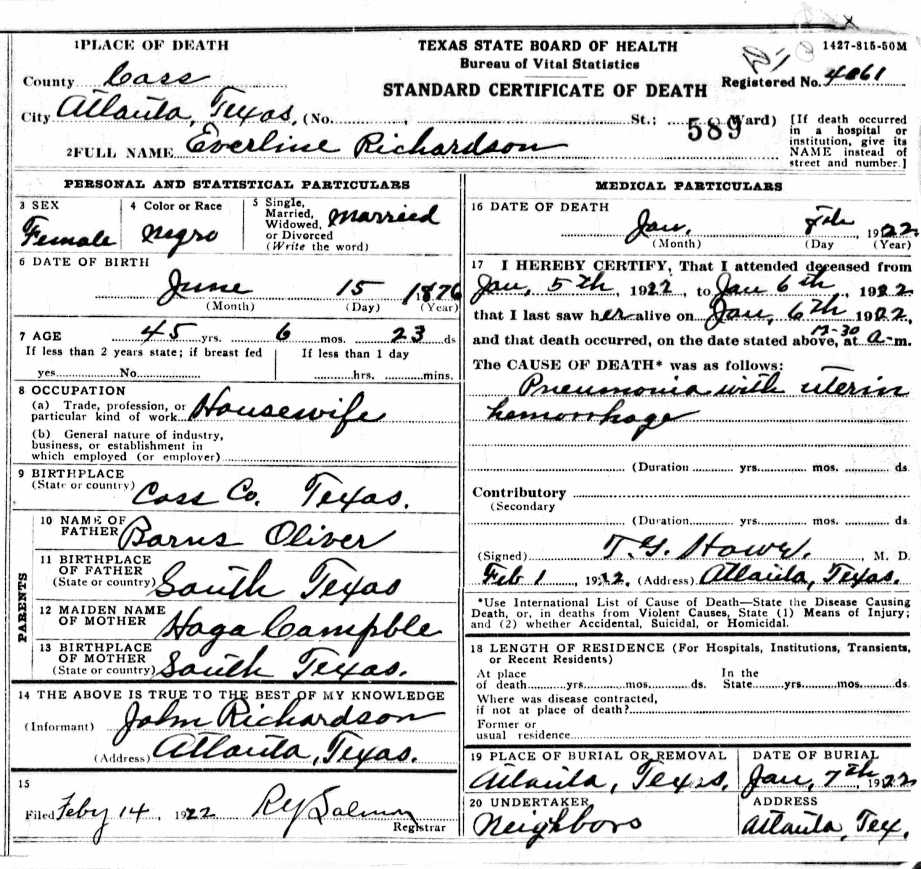 1427-815-50M
1 PLACE OF DEATH
TEXAS STATE BOARD OF HEALTH
Bureau of Vital Statistics
STANDARD CERTIFICATE OF DEATH
Registered No. 4061
County Cass
City Atlanta, Texas, (No. , St.; Ward)
589
[If death occurred in a hospital or institution, give its NAME instead of street and number.]
2 FULL NAME Everline Richardson
PERSONAL AND STATISTICAL PARTICULARS
3 SEX
Female
4 Color or Race
Negro
5 Single, Married, Widowed, or Divorced (Write the word)
Married
6 DATE OF BIRTH
June 15 1876
(Month) (Day) (Year)
7 AGE 45 yrs. 6 mos. 23 ds
If less than 2 years state; if breast fed
yes No
If less than 1 day
hrs. mins.
8 OCCUPATION
(a) Trade, profession, or particular kind of work Housewife
(b) General nature of industry, business, or establishment in which employed (or employer)
9 BIRTHPLACE
(State or country) Cass Co. Texas.
PARENTS
10 NAME OF FATHER Barns Oliver
11 BIRTHPLACE OF FATHER (State or country) South Texas
12 MAIDEN NAME OF MOTHER Haga Campble
13 BIRTHPLACE OF MOTHER (State or country) South Texas.
14 THE ABOVE IS TRUE TO THE BEST OF MY KNOWLEDGE
(Informant) John Richardson
(Address) Atlanta, Texas.
15
Filed Feby 14, 1922
Registrar
MEDICAL PARTICULARS
16 DATE OF DEATH
Jan. 1922
(Month) (Day) (Year)
17 I HEREBY CERTIFY, That I attended deceased from
Jan, 5th, 1922, to Jan 6th, 1922
that I last saw her alive on Jan, 6th 1922
and that death occurred, on the date stated above, at 12-30 a-m.
The CAUSE OF DEATH* was as follows:
Pneumonia with uterin
hemorrhage
(Duration yrs. mos. ds
Contributory
(Secondary
(Duration yrs. mos. ds.
(Signed) T.G. Howe. M. D.
Feb 1, 1922. (Address) Atlanta, Texas.
*Use International List of Cause of Death—State the Disease Causing
Death, or, in deaths from Violent Causes, State (1) Means of Injury;
and (2) whether Accidental, Suicidal, or Homicidal.
18 LENGTH OF RESIDENCE (For Hospitals, Institutions, Transients,
or Recent Residents)
At place of death yrs. mos. ds.
In the State yrs. mos. ds.
Where was disease contracted,
if not at place of death?
Former or
usual residence
19 PLACE OF BURIAL OR REMOVAL
Atlanta, Texas.
DATE OF BURIAL
Jan, 7th, 1922
20 UNDERTAKER
Neighbors
ADDRESS
Atlanta, Tex.